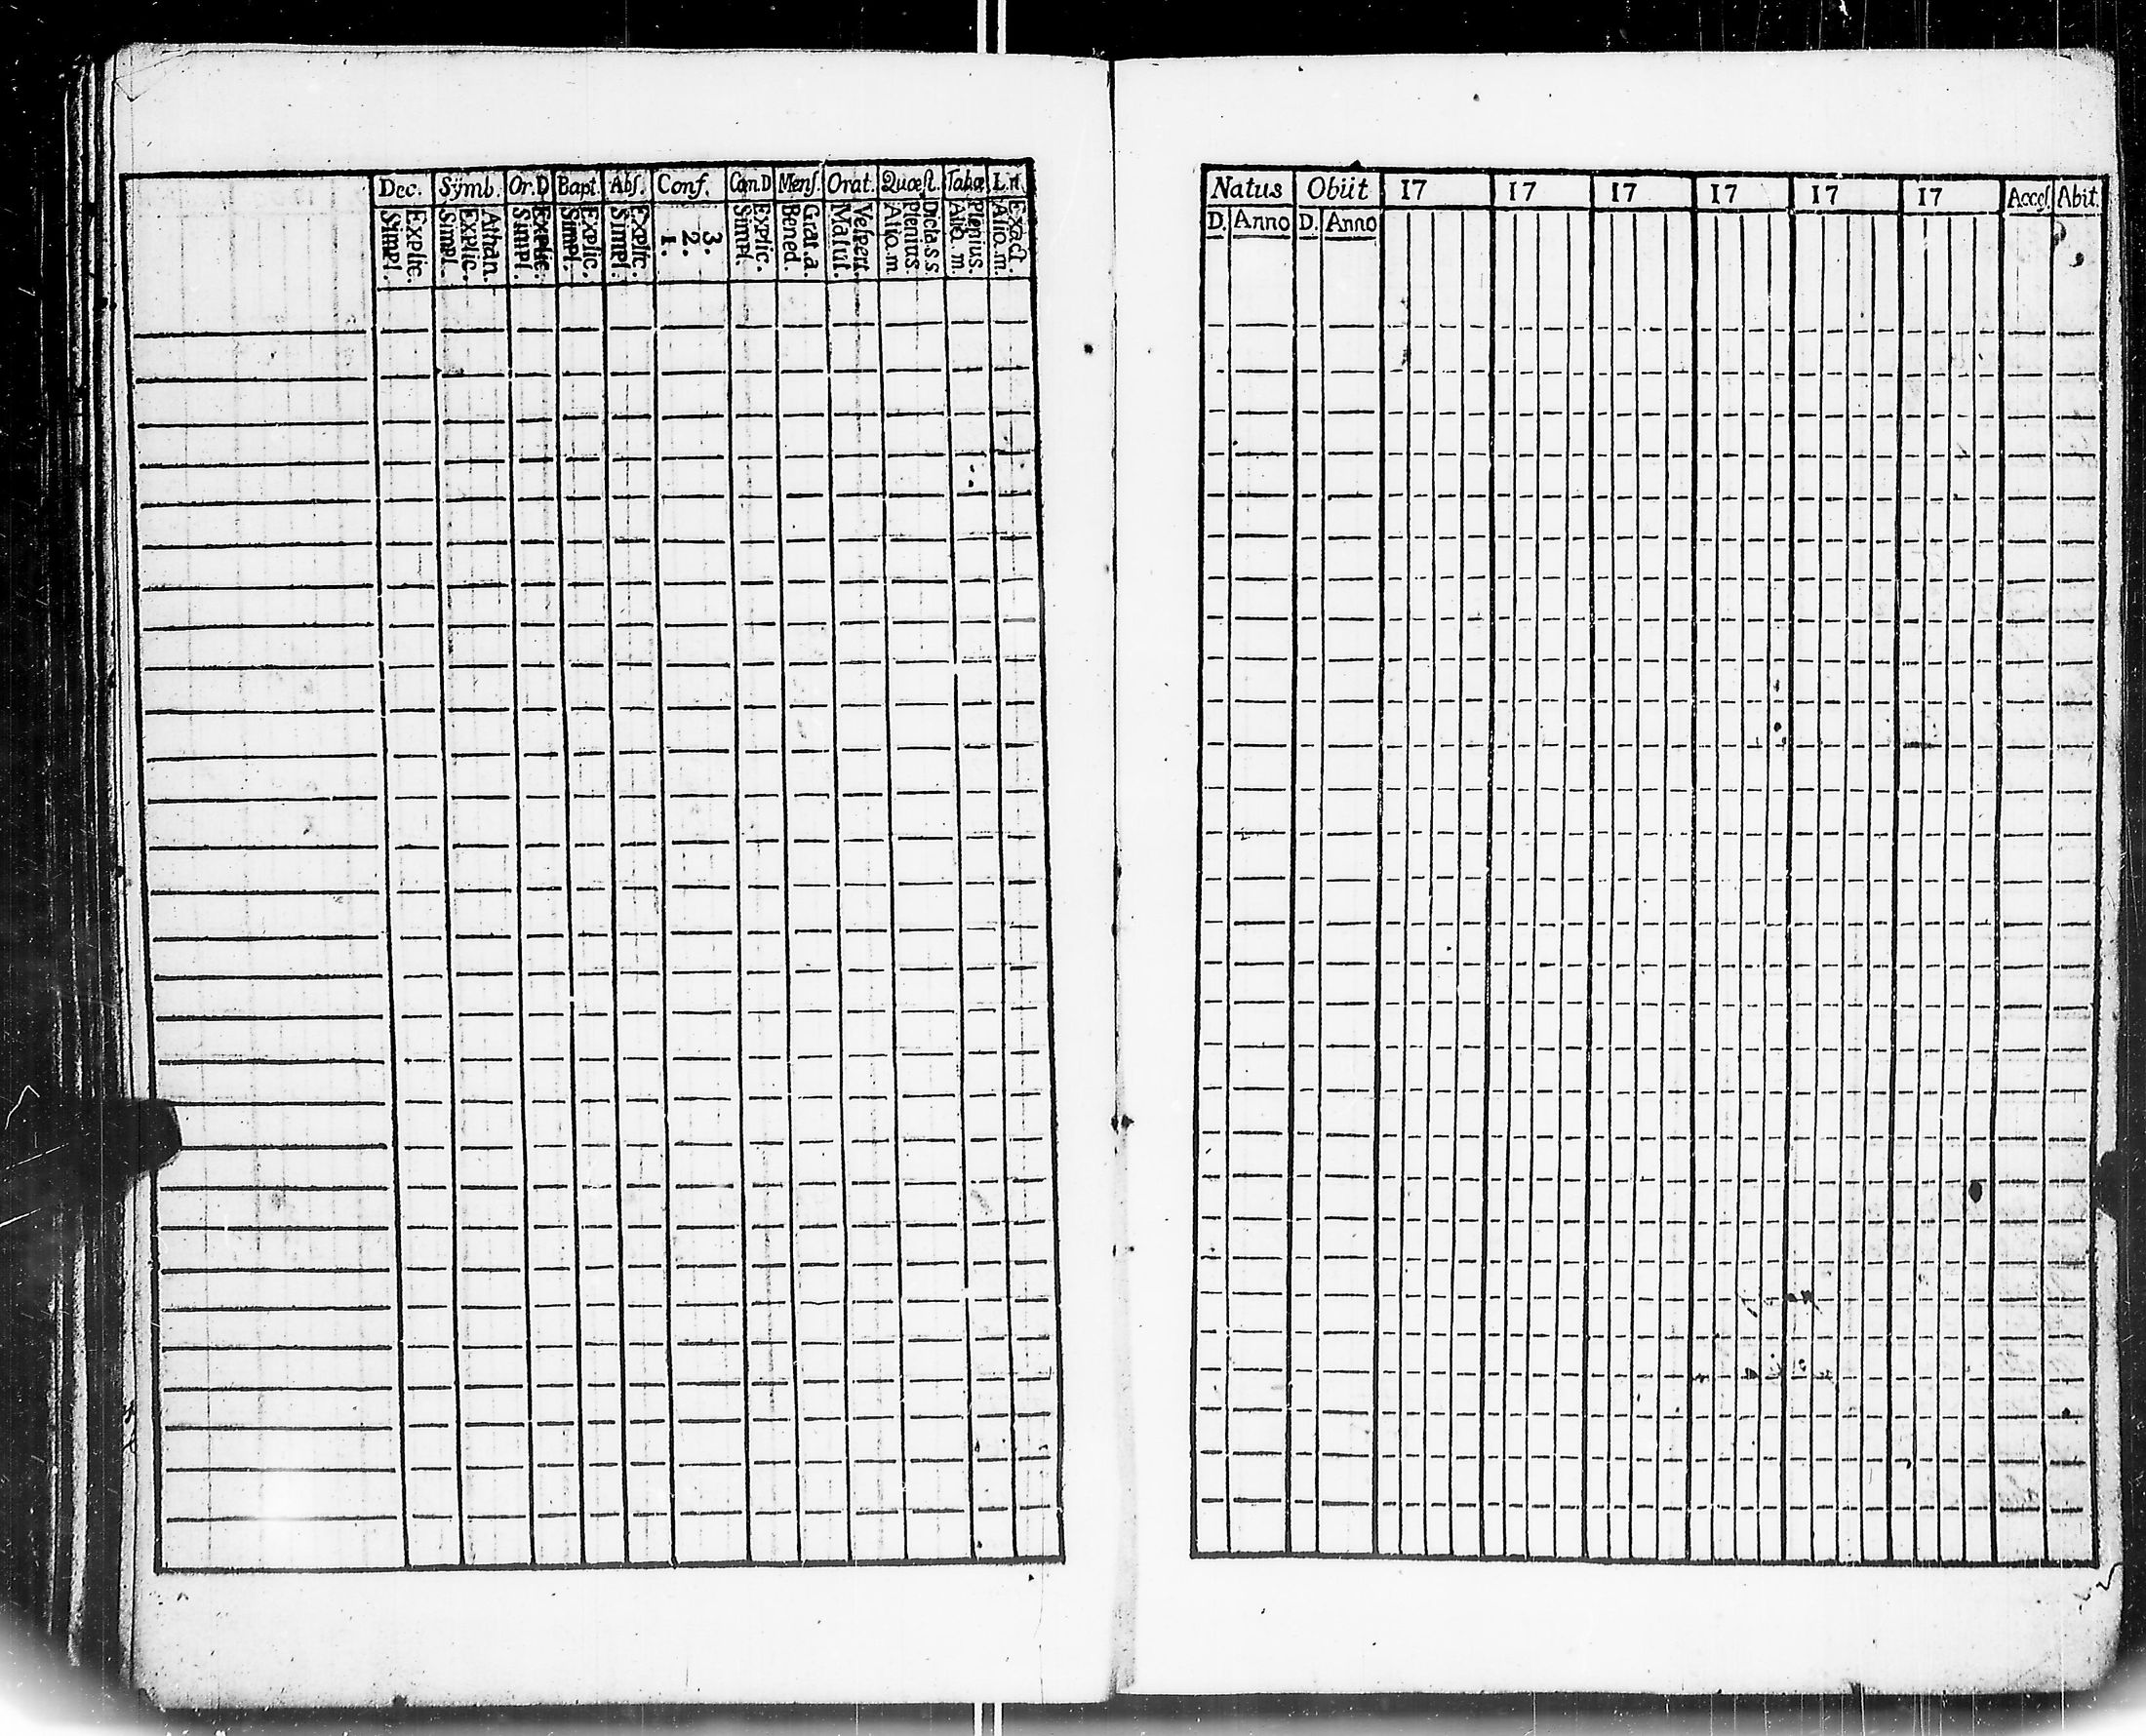 Dec. Sÿmb. Or.D Bapt. Abſ. Conf. Cœn.D Menſ. Orat. Quæſt. Tabæ L.n.
Simpl. Explic. Simpl. Explic. Athan. Simpl. Explic. Simpl. Explic. Simpl. Explic. 1. 2. 3. Simpl. Explic. Bened. Grat.a. Matut. Veſpert. Aliq.m. Plenius. Dicta.s.s. Aliq.m. Plenius. Aliq.m. Exact.
Natus Obiit 17 17 17 17 17 17 Acceſ. Abit.
D. Anno D. Anno